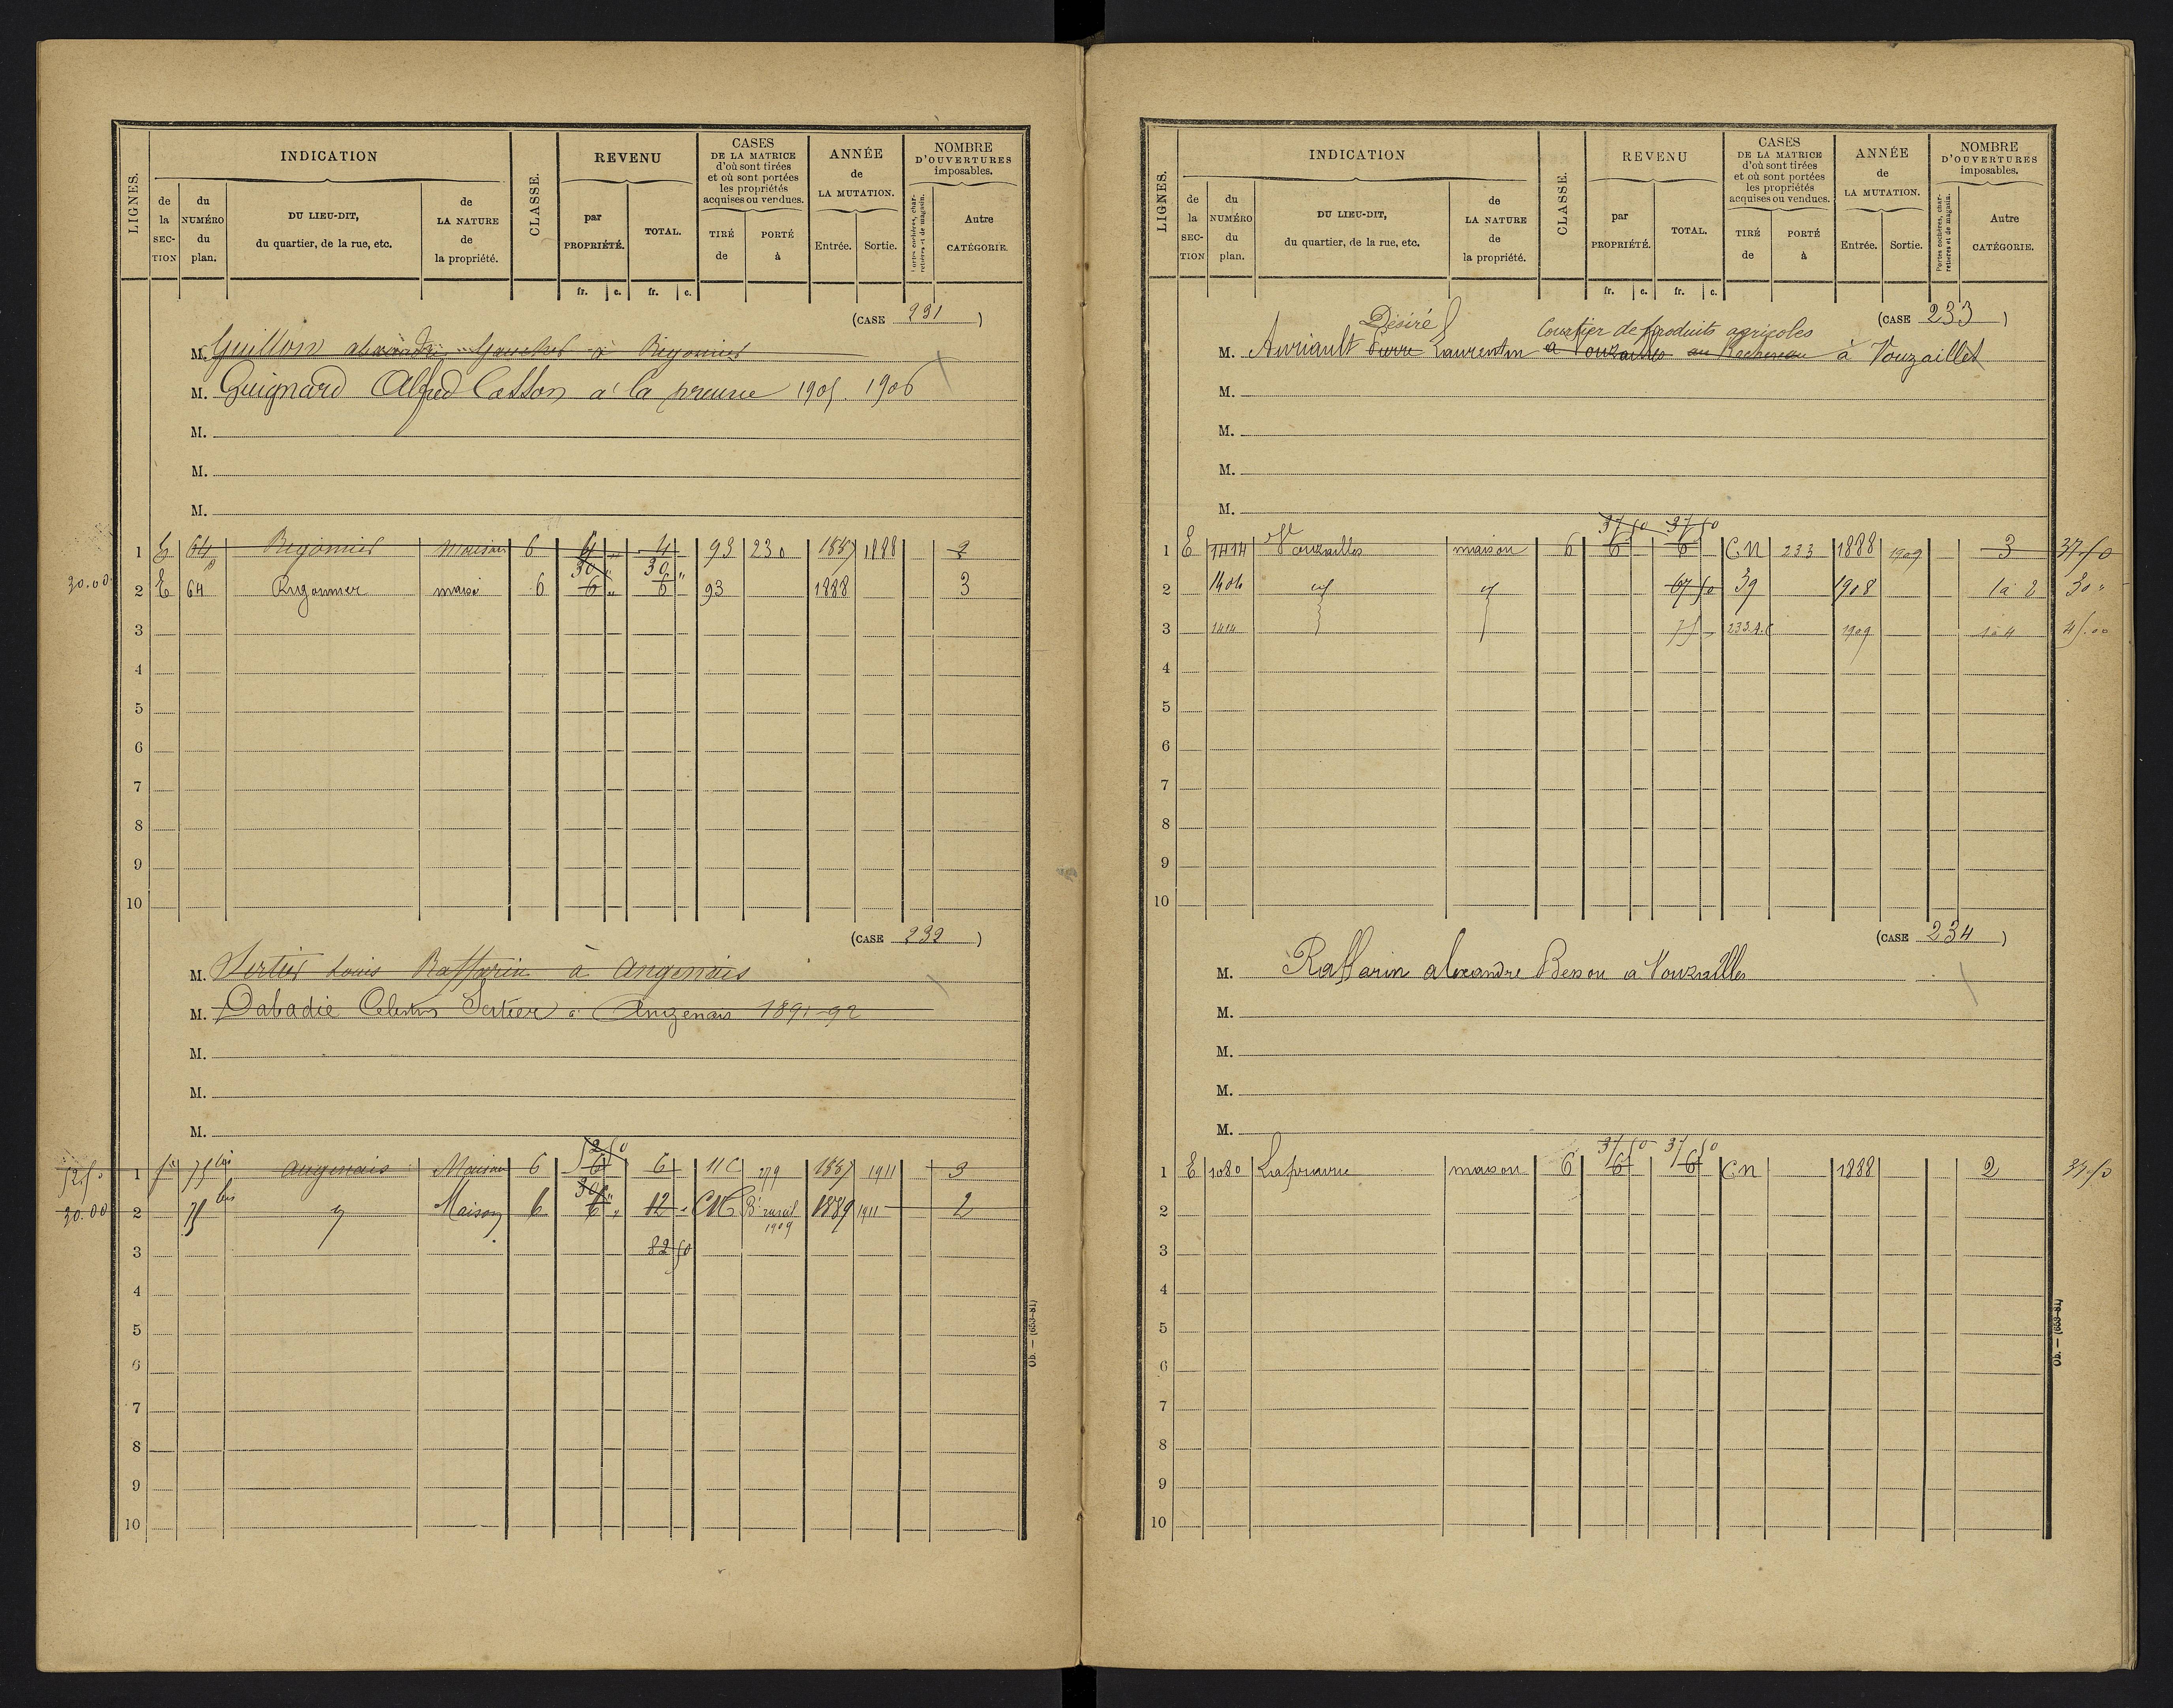 LIGNES.
INDICATION
CLASSE.
REVENU
CASES
DE LA MATRICE
d'où sont tirées
et où sont portées
les propriétés
acquises ou vendues.
ANNÉE
de
LA MUTATION.
NOMBRE
D'OUVERTURES
imposables.
de la SECTION
du NUMÉRO du plan.
DU LIEU-DIT,
du quartier, de la rue, etc.
de LA NATURE de la propriété.
par PROPRIÉTÉ.
TOTAL.
TIRÉ de
PORTÉ à
Entrée.
Sortie.
Portes cochères, charretières et de magasin.
Autre CATÉGORIE.
fr. c. fr. c.
(CASE 231)
M. Guillon alexandre Gauchet à Rigomier
M. Guignard Alfred Casson a la preuve 1905. 1906
M.
M.
M.
1 E 64 Rigomier maison 6 4 „ 4 93 230 1887 1888 2
30 „ 30 „
30.00 2 E 64 Rigommer maiso 6 6 „ 6 93 1888 3
3
4
5
6
7
8
9
10
(CASE 232)
M. Sertier Louis Raffarin à angenais
M. Dabadie Celestin Sertier à Angenais 1891-92
M.
M.
M.
52 50
52.50 1 75 bis angenais Maison 6 6 6 11C 279 1887 1911 3
30 „
30.00 2 75 bis Maison 6 6 „ 12 „ CN B. rural 1909 1889 1911 2
3 82 50
4
5
6
7
8
9
10
Ob. — (653-81)
LIGNES.
INDICATION
CLASSE.
REVENU
CASES
DE LA MATRICE
d'où sont tirées
et où sont portées
les propriétés
acquises ou vendues.
ANNÉE
de
LA MUTATION.
NOMBRE
D'OUVERTURES
imposables.
de la SECTION
du NUMÉRO du plan.
DU LIEU-DIT,
du quartier, de la rue, etc.
de LA NATURE de la propriété.
par PROPRIÉTÉ.
TOTAL.
TIRÉ de
PORTÉ à
Entrée.
Sortie.
Portes cochères, charretières et de magasin.
Autre CATÉGORIE.
fr. c. fr. c.
(CASE 233)
Désiré Courtier de produits agricoles
M. Auriault Pierre Laurentin a Vouzailles au Rochereau à Vouzailles
M.
M.
M.
M.
37 50 37 50
1 E 1414 Vouzailles maison 6 6 6 C.N 233 1888 1909 3 37.50
2 1404 67 50 39 1908 1 à 2 30 „
3 1414 75 233.A.C 1909 1 à 4 45.00
4
5
6
7
8
9
10
(CASE 234)
M. Raffarin alexandre Besson a Vouzailles
M.
M.
M.
M.
37 50 37 50
1 E 1080 maison 6 6 6 C.N 1888 2 37.50
2
3
4
5
6
7
8
9
10
Ob. — (653-81)